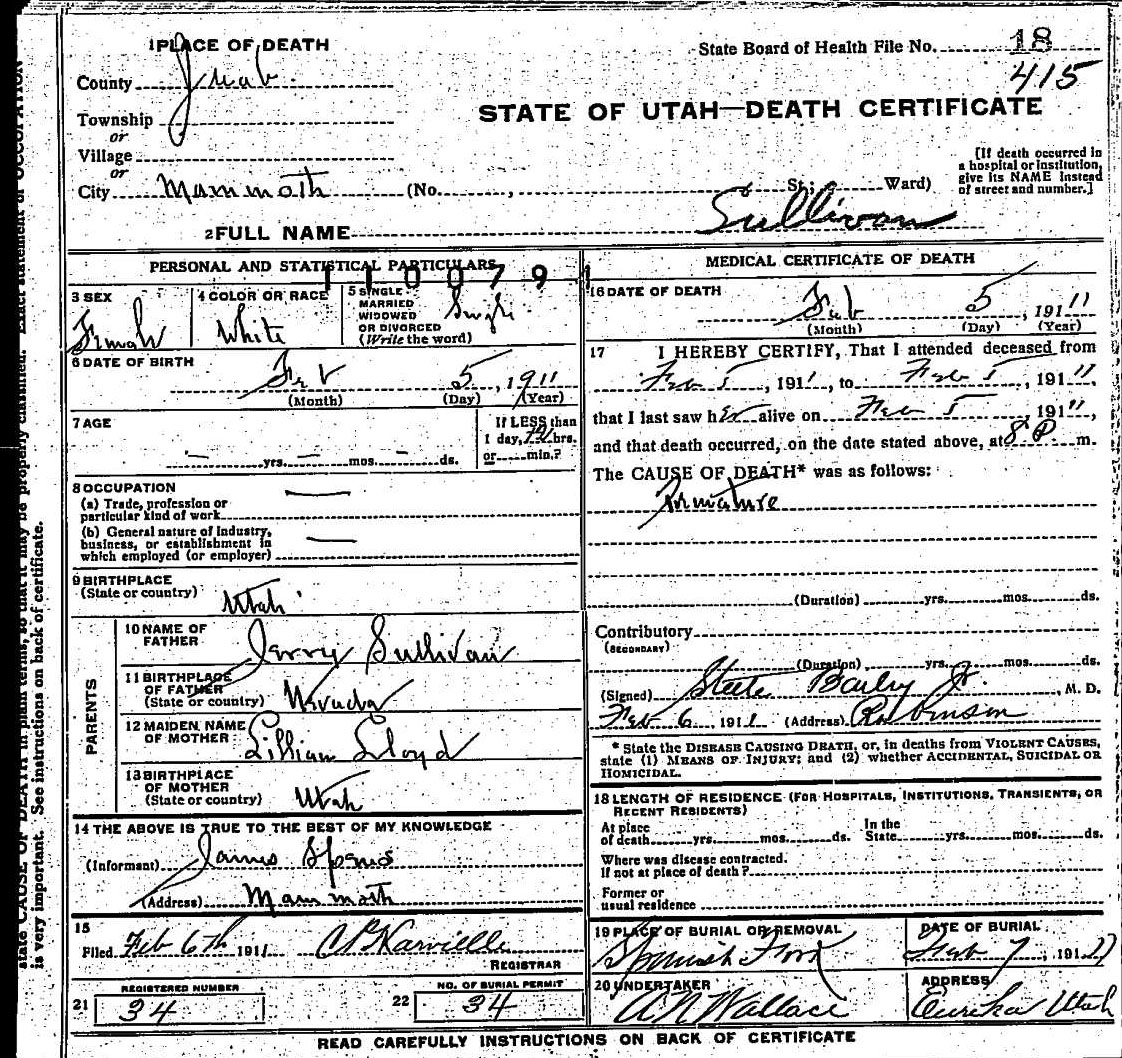 1 PLACE OF DEATH
State Board of Health File No. 18
415
County Juab.
STATE OF UTAH—DEATH CERTIFICATE
Township
or
Village
or
City Mammoth (No. , St.; Ward)
[If death occurred in
a hospital or institution,
give its NAME instead
of street and number.]
2 FULL NAME Sullivan
PERSONAL AND STATISTICAL PARTICULARS
110079 1
3 SEX
Female
4 COLOR OR RACE
White
5 SINGLE
MARRIED
WIDOWED
OR DIVORCED
(Write the word)
Single
6 DATE OF BIRTH
Feb 5, 1911
(Month) (Day) (Year)
7 AGE
— yrs. — mos. — ds.
If LESS than
1 day, hrs.
or min.?
8 OCCUPATION
(a) Trade, profession or
particular kind of work
—
(b) General nature of industry,
business, or establishment in
which employed (or employer)
—
9 BIRTHPLACE
(State or country) Utah
PARENTS
10 NAME OF
FATHER Jerry Sullivan
11 BIRTHPLACE
OF FATHER
(State or country) Nevada
12 MAIDEN NAME
OF MOTHER Lillian Lloyd
13 BIRTHPLACE
OF MOTHER
(State or country) Utah
14 THE ABOVE IS TRUE TO THE BEST OF MY KNOWLEDGE
(Informant) James
(Address) Mammoth
15
Filed Feb 6th 1911
REGISTRAR
21 REGISTERED NUMBER
34
22 NO. OF BURIAL PERMIT
34
MEDICAL CERTIFICATE OF DEATH
16 DATE OF DEATH
Feb 5, 191 11
(Month) (Day) (Year)
17 I HEREBY CERTIFY, That I attended deceased from
Feb 5, 1911, to Feb 5, 191 11,
that I last saw her alive on Feb 5, 191 11,
and that death occurred, on the date stated above, at 8 P m.
The CAUSE OF DEATH* was as follows:
Premature
(Duration) yrs. mos. ds.
Contributory
(SECONDARY)
(Duration) yrs. mos. ds.
(Signed) Steele Bailey Jr., M. D.
Feb 6, 1911 (Address) Robinson
* State the DISEASE CAUSING DEATH, or, in deaths from VIOLENT CAUSES,
state (1) MEANS OF INJURY; and (2) whether ACCIDENTAL, SUICIDAL OR
HOMICIDAL.
18 LENGTH OF RESIDENCE (FOR HOSPITALS, INSTITUTIONS, TRANSIENTS, OR
RECENT RESIDENTS)
At place
of death yrs. mos. ds.
In the
State yrs. mos. ds.
Where was disease contracted.
If not at place of death?
Former or
usual residence
19 PLACE OF BURIAL OR REMOVAL
Spanish Fork
DATE OF BURIAL
Feb 7, 191 11
20 UNDERTAKER
A N Wallace
ADDRESS
Eureka Utah
READ CAREFULLY INSTRUCTIONS ON BACK OF CERTIFICATE
state CAUSE OF DEATH in plain terms, so that it may be properly classified. Exact statement of OCCUPATION
is very important. See instructions on back of certificate.